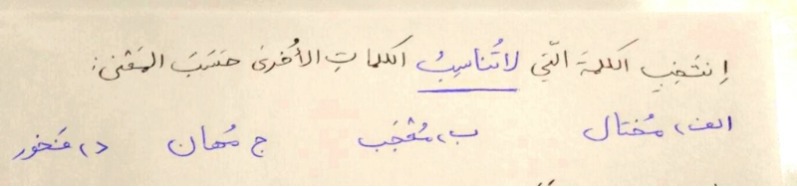 اِنتَخِبِ الكلمةَ الّتي لا تُناسِبُ الكلماتِ الأُخرىٰ حَسَبَ المَعْنى:
الف، مُختال ب، مُعْجَب ج مُهان د، فَخور